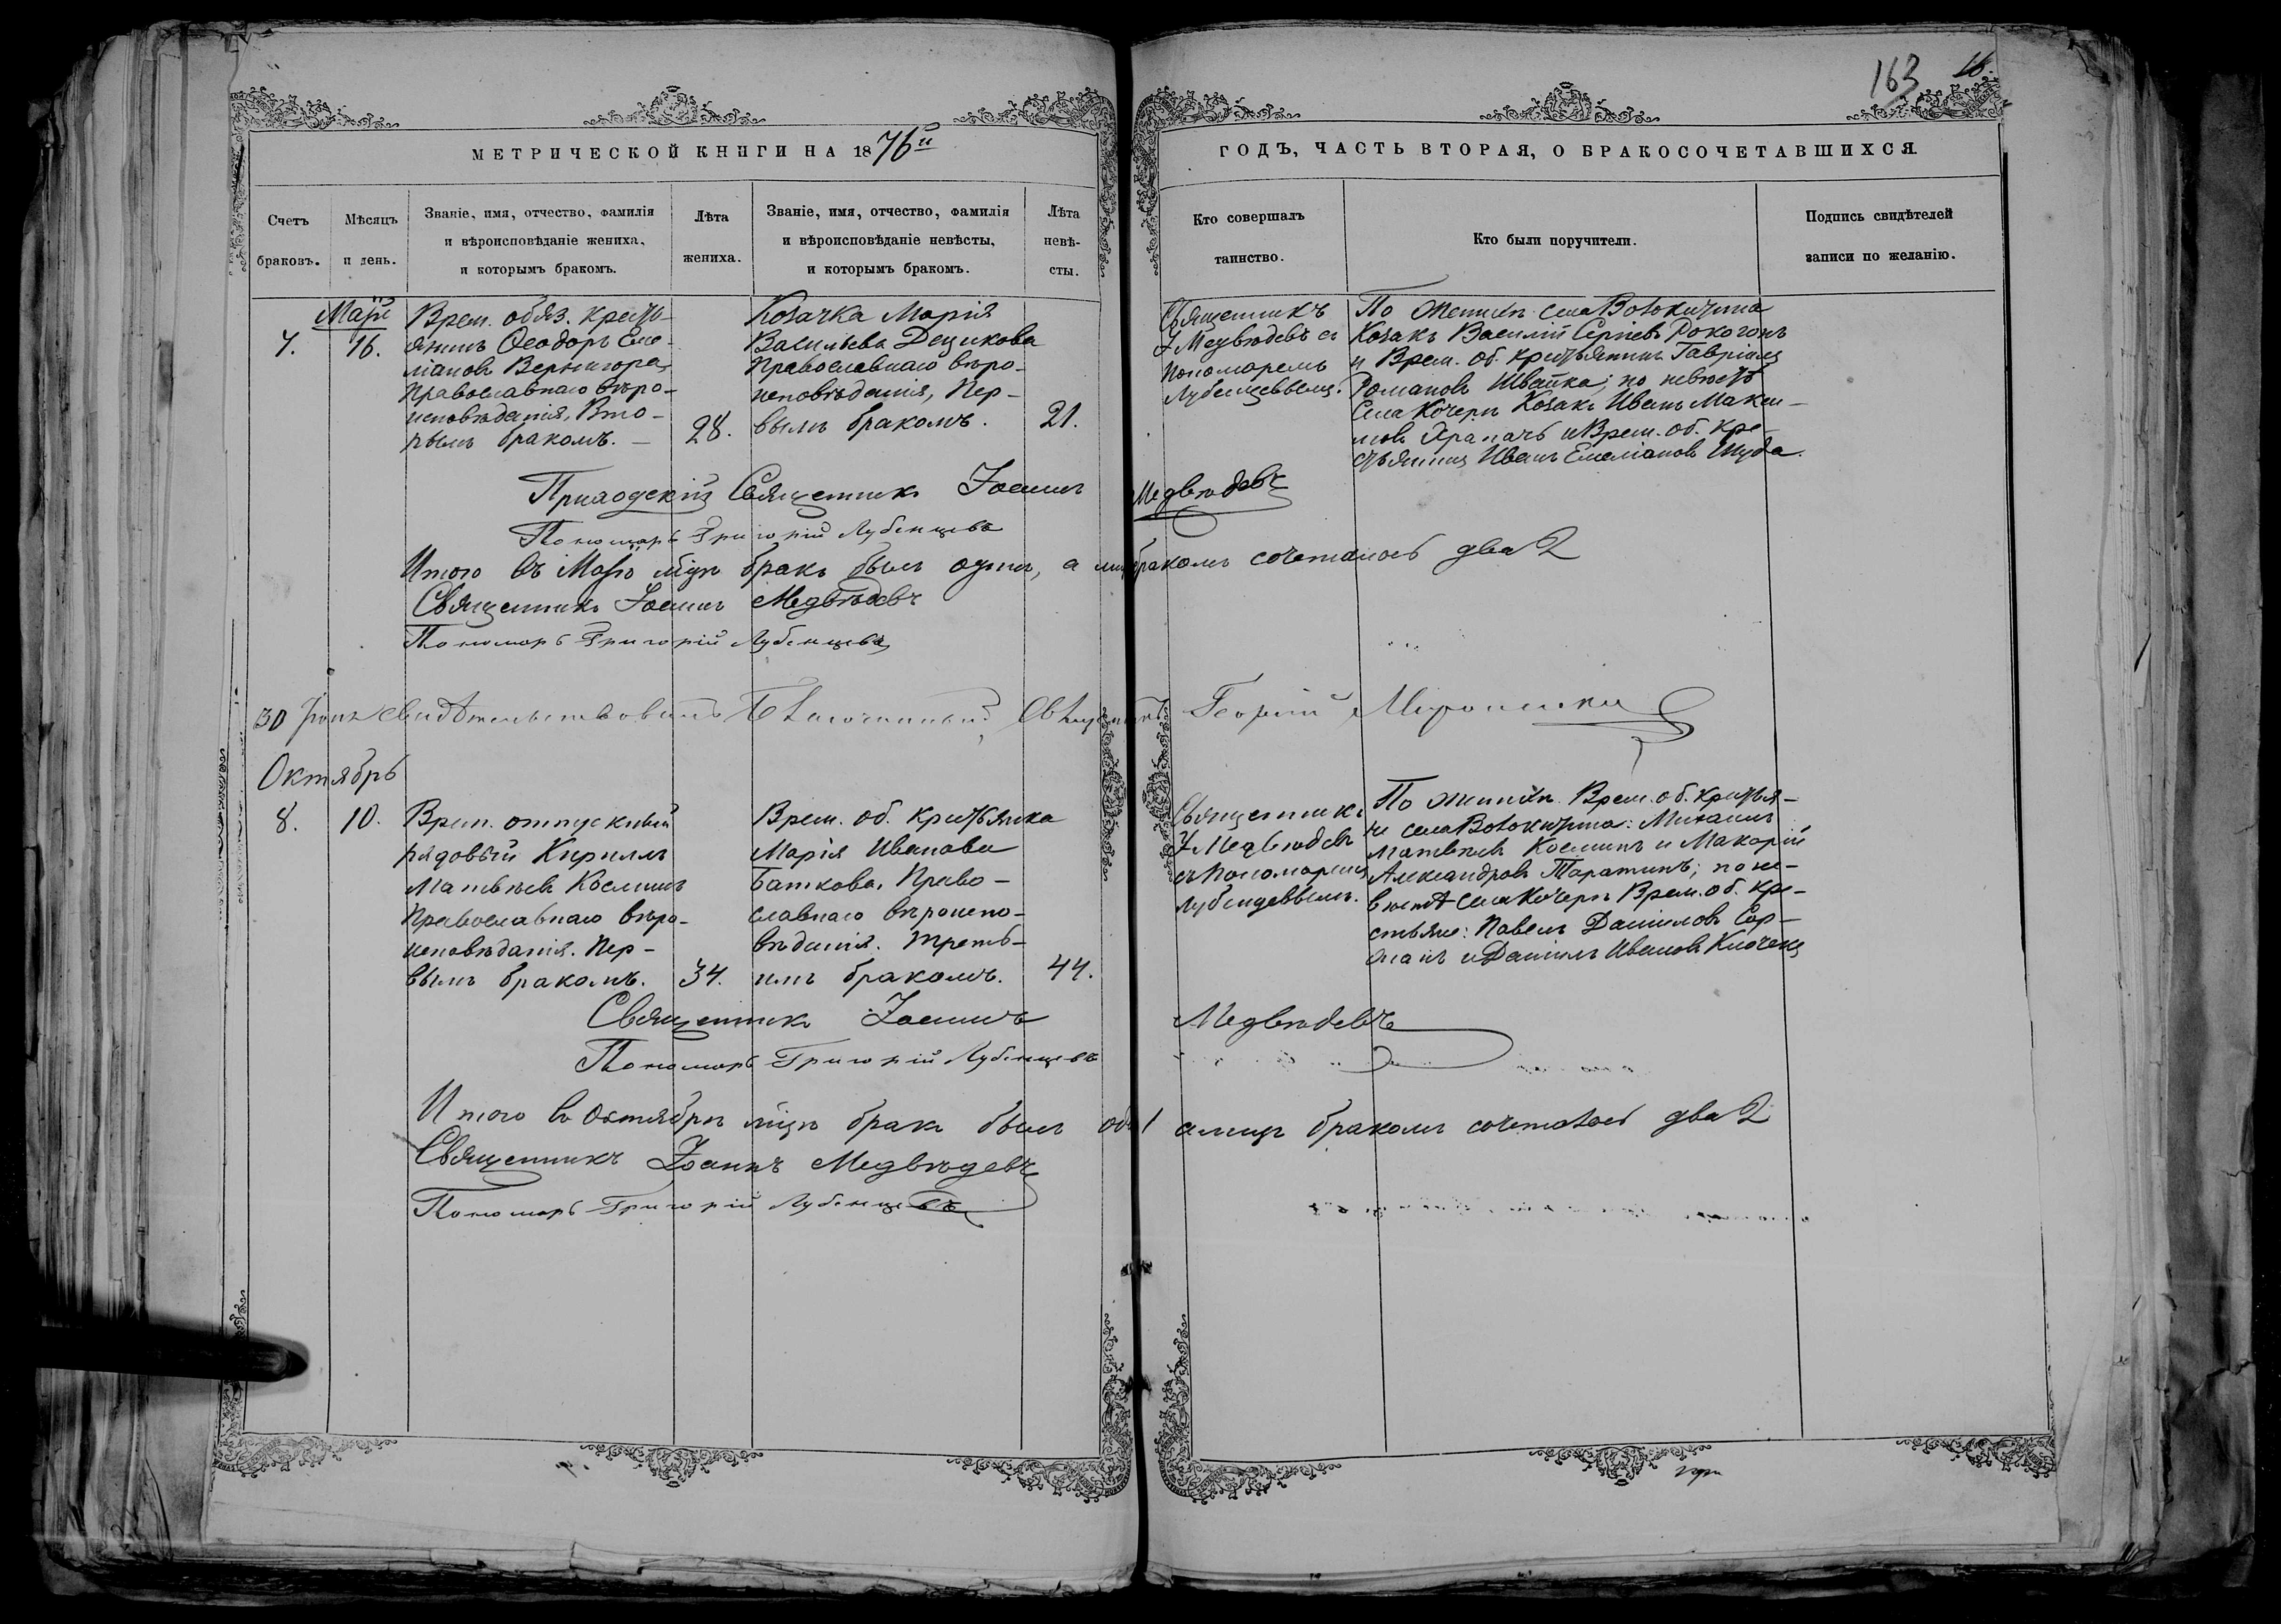 163 16.
МЕТРИЧЕСКОЙ КНИГИ НА 1876й
ГОДЪ, ЧАСТЬ ВТОРАЯ, О БРАКОСОЧЕТАВШИХСЯ.
Счетъ
браковъ.
Мѣсяцъ
и день.
Званіе, имя, отчество, фамилія
и вѣроисповѣданіе жениха,
и которымъ бракомъ.
Лѣта
жениха.
Званіе, имя, отчество, фамилія
и вѣроисповѣданіе невѣсты,
и которымъ бракомъ.
Лѣта
невѣ-
сты.
Кто совершалъ
таинство.
Кто были поручители.
Подпись свидѣтелей
записи по желанію.
7.
Май
16.
Врем. обяз. кресть-
янинъ Ѳеодоръ Еме-
ліановъ Вернигора,
Православнаго вѣро-
исповѣданія, Вто-
рымъ бракомъ. —
28.
Козачка Марія
Васильева
Православнаго вѣро-
исповѣданія, Пер-
вымъ бракомъ.
21.
Священникъ
І Медвѣдевъ съ
пономаремъ
Лубенцевымъ.
По женихѣ села
Козакъ Василій Сергіевъ Рокогонъ
и Врем. об. крестьянинъ Гавріилъ
Романовъ Швайка; по невѣстѣ
Села Кочеръ Козакъ Иванъ Макси-
мовъ Храпачъ и Врем. об. кре-
стьянинъ Иванъ Емеліановъ Шуда.
Приходскій Священникъ Іоаннъ Медвѣдевъ
Пономарь Григорій Лубенцевъ
Итого въ Маѣ мцѣ бракъ былъ одинъ, а лицъ бракомъ сочеталось два 2
Священникъ Іоаннъ Медвѣдевъ
Пономарь Григорій Лубенцевъ
30 свидѣтельствовалъ Благочинный Священникъ Георгій
Октябрь
8.
10.
Врем. отпускный
рядовый Кириллъ
Матвѣевъ Косминъ
Православнаго вѣро-
исповѣданія. Пер-
вымъ бракомъ.
34.
Врем. об. Крестьянка
Марія Иванова
Баткова, Право-
славнаго вѣроиспо-
вѣданія. Треть-
имъ бракомъ.
44.
Священникъ
І Медвѣдевъ
съ Пономаремъ
Лубенцевымъ.
По женихѣ Врем. об. крестья-
не села Михаилъ
Матвѣевъ Косминъ и Макарій
Александровъ Таратинъ; по не-
вѣстѣ села Кочеръ Врем. об. кре-
стьяне: Павелъ Даниловъ
и Даніилъ Ивановъ
Священникъ Іоаннъ Медвѣдевъ
Пономарь Григорій Лубенцевъ
Итого въ Октябрѣ мцѣ бракъ былъ 1 а лицъ бракомъ сочеталось два 2
Священникъ Іоаннъ Медвѣдевъ
Пономарь Григорій Лубенцевъ